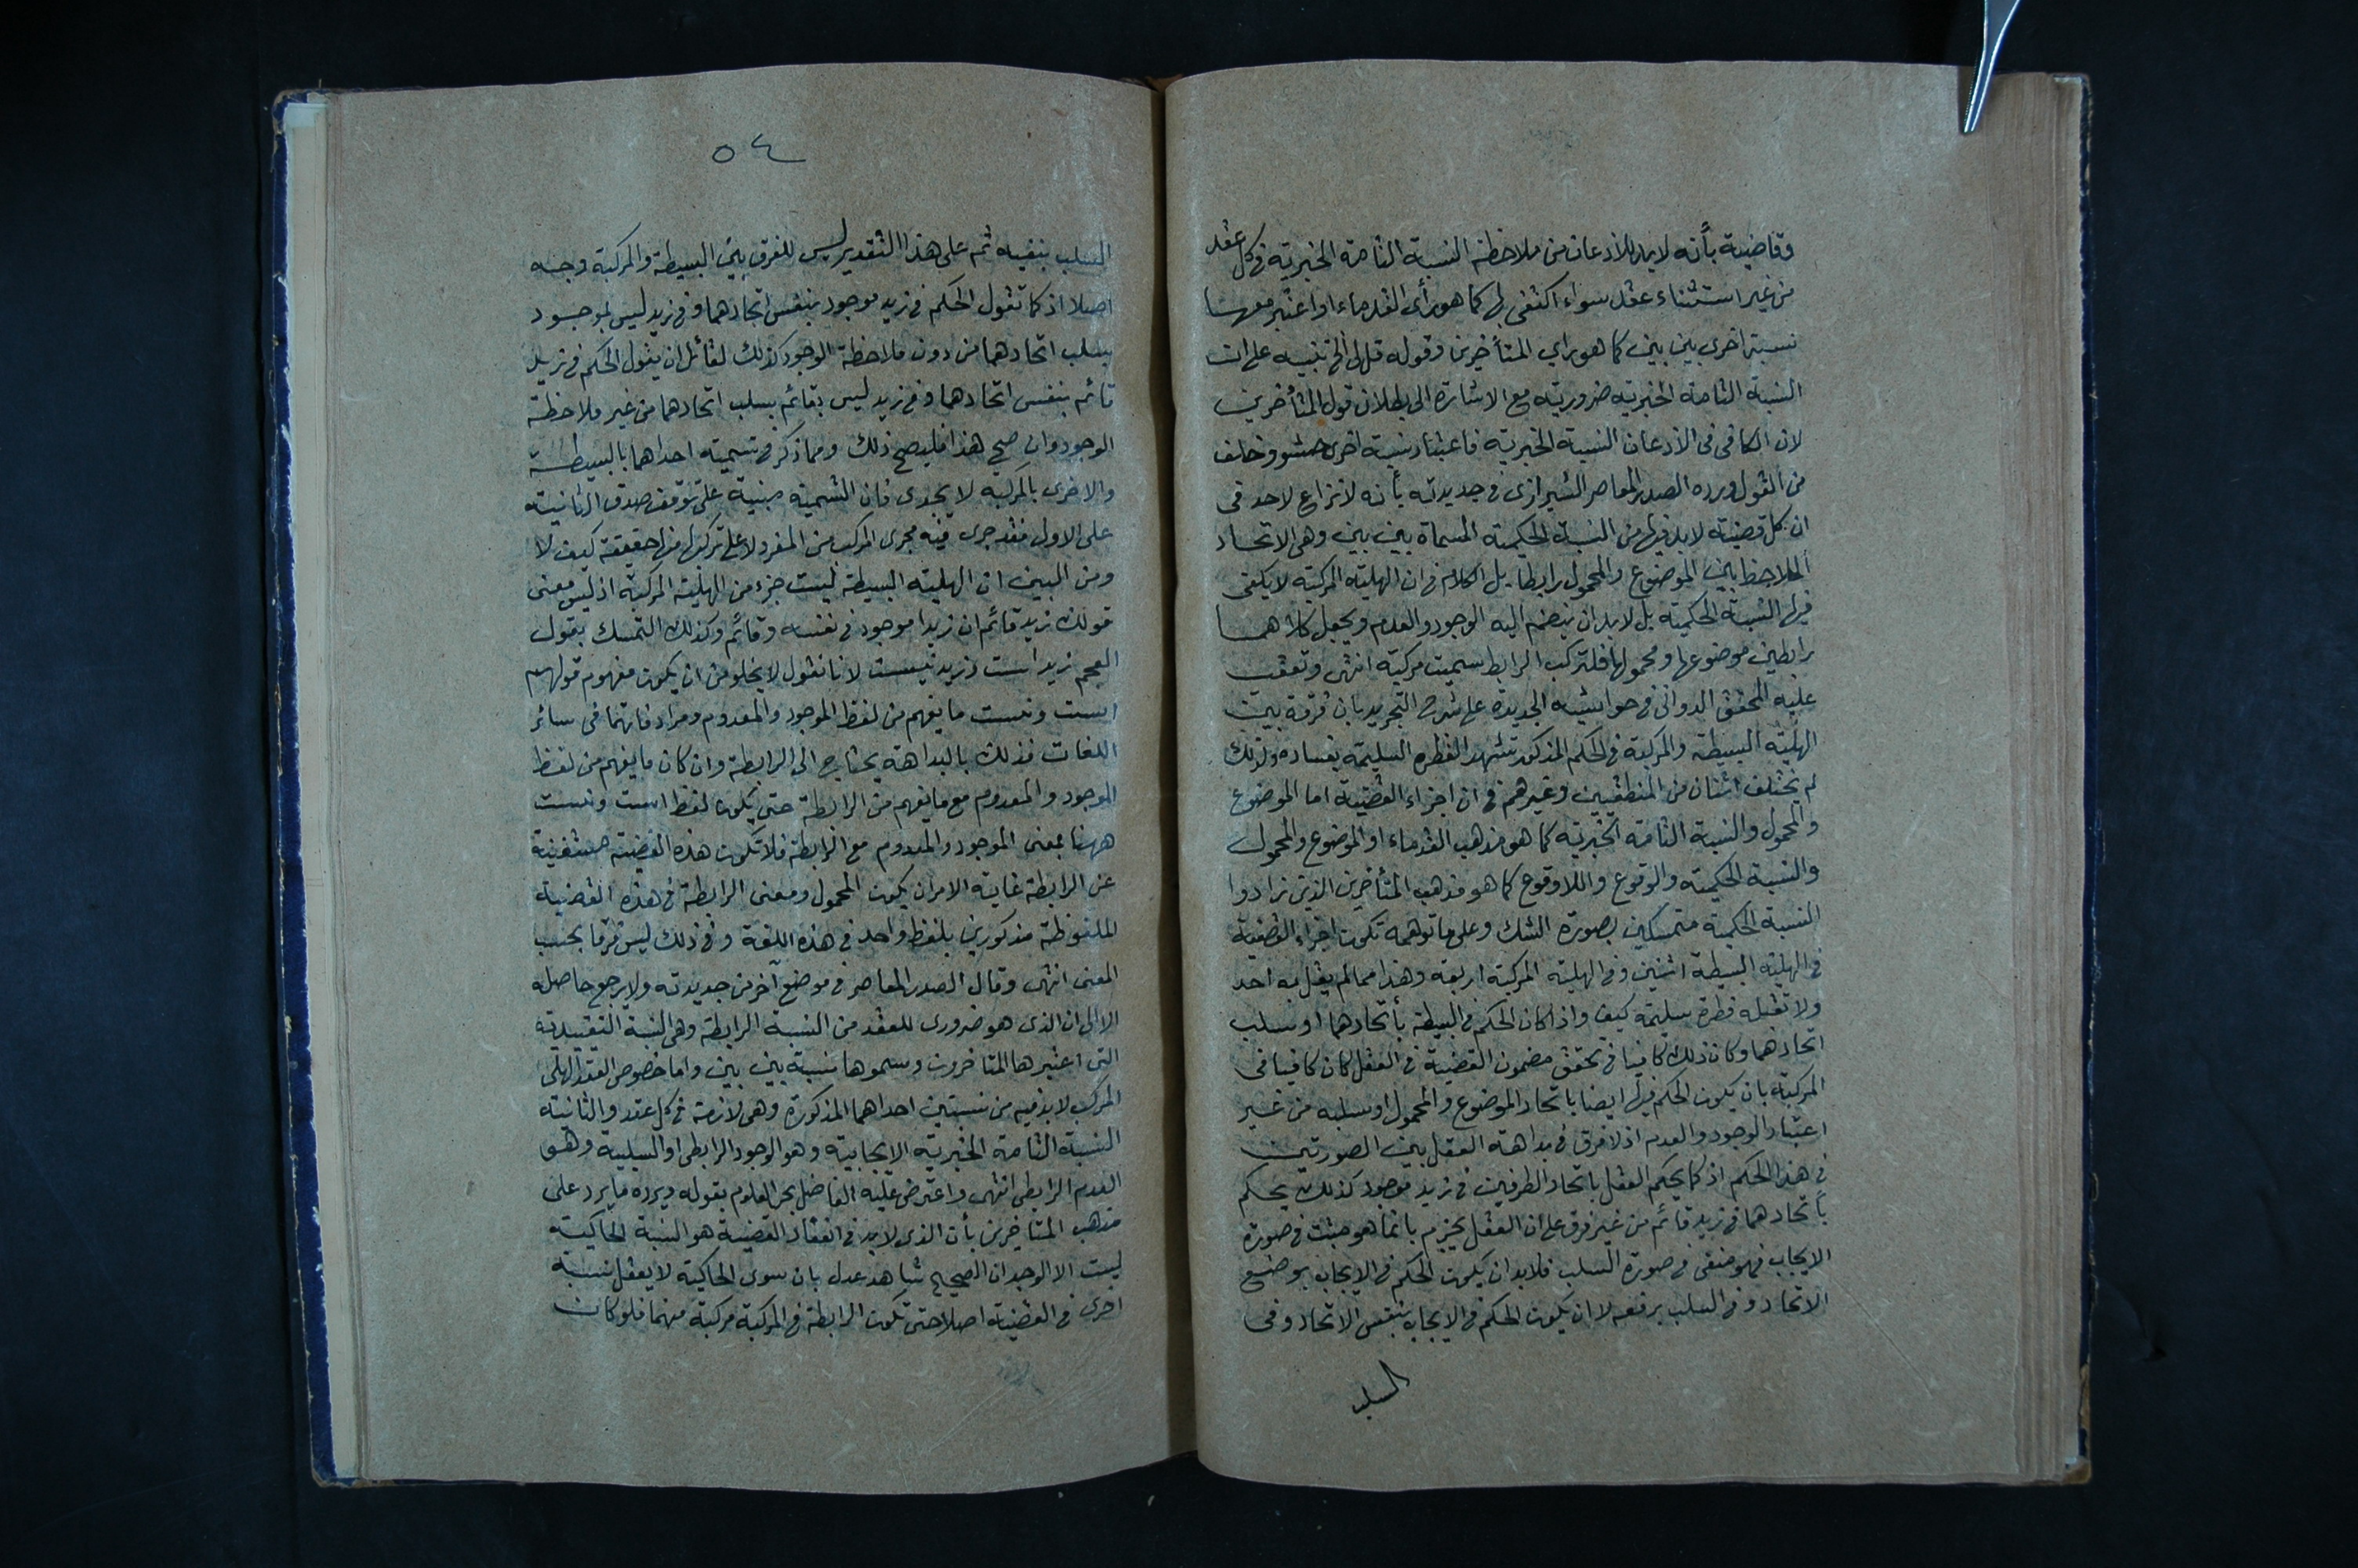 وقاضية بأنه لابد للاذعان من ملاحظة النسبة التامة الخبرية في كل عقد
من غير استثناء عقد سواء اكتفى بها كما هو رأى القدماء او اعتبر معها
نسبة اخرى بين بين كما هو راي المتأخرين وقوله قيل الخ تنبيه على ان
النسبة التامة الخبرية ضرورية مع الاشارة الى بطلان قول المتأخرين
لان الكافى فى الاذعان النسبة الخبرية فاعتبار نسبة اخرى حشو وخلف
من القول ويرده الصدر المعاصر الشيرازى في جديدته بأنه لا نزاع لاحد فى
ان كل قضية لابد فيها من النسبة الحكمية المسماة بين بين وهى الاتحاد
الملاحظ بين الموضوع والمحمول رابطا بل الكلام في ان الهلية المركبة لا يكفى
فيها النسبة الحكمية بل لابد ان ينضم اليه الوجود والعدم ويجعل كلاهما
رابطين موضوعها ومحمولها فلتركب الرابط سميت مركبة انتهى وتعقب
عليه المحقق الدوانى في حواشيه الجديدة على شرح التجريد بان فرقه بين
الهلية البسيطة والمركبة في الحكم المذكور تشهد الفطرة السليمة بفساده ولذلك
لم يختلف اثنان من المنطقيين وغيرهم في ان اجزاء القضية اما الموضوع
والمحمول والنسبة التامة الخبرية كما هو مذهب القدماء او الموضوع والمحمول
والنسبة الحكمية والوقوع واللاوقوع كما هو مذهب المتأخرين الذين زادوا
النسبة الحكمية متمسكين بصورة الشك وعلى ما توهمه تكون اجزاء القضية
في الهلية البسيطة اثنين وفي الهلية المركبة اربعة وهذا مما لم يقل به احد
ولا تقبله فطرة سليمة كيف واذا كان الحكم في البسيطة بأتحادهما او سلب
اتحادهما وكان ذلك كافيا في تحقق مضمون القضية في العقل كان كافيا فى
المركبة بان يكون الحكم فيها ايضا باتحاد الموضوع والمحمول او سلبه من غير
اعتبار الوجود والعدم اذ لا فرق في بداهة العقل بين الصورتين
في هذا الحكم اذ كما يحكم العقل باتحاد الطرفين في زيد موجود كذلك يحكم
بأتحادهما في زيد قائم من غير فرق على ان العقل يجزم بانما هو مثبت في صورة
الايجاب فهو منفى في صورة السلب فلابد ان يكون الحكم في الايجاب بوضع
الاتحاد وفى السلب برفعه لا ان يكون الحكم في الايجاب بنفس الاتحاد وفى
السلب
٥٤
السلب بنفيه ثم على هذا التقدير ليس للفرق بين البسيطة والمركبة وجه
اصلا اذ كما تقول الحكم في زيد موجود بنفس اتحادهما وفى زيد ليس بموجود
بسلب اتحادهما من دون ملاحظة الوجود كذلك لقائل ان يقول الحكم في زيد
قائم بنفس اتحادهما وفى زيد ليس بقائم بسلب اتحادهما من غير ملاحظة
الوجود وان صح هذا فليصح ذلك ومما ذكر في تسمية احداهما بالبسيطة
والاخرى بالمركبة لا يجدى فان التسمية مبنية على توقف صدق الثانية
على الاول فقد جرى فيه مجرى المركب من المفرد لا على تركبها منها حقيقة كيف لا
ومن المبين ان الهلية البسيطة ليست جزء من الهلية المركبة اذ ليس معنى
قولك زيد قائم ان زيدا موجود في نفسه وقائم وكذلك التمسك بقول
العجم زيد است وزيد نيست لانا نقول لا يخلو من ان يكون مفهوم قولهم
است ونيست ما يفهم من لفظ الموجود والمعدوم ومرادفاتهما في سائر
اللغات فذلك بالبداهة يحتاج الى الرابطة وان كان ما يفهم من لفظ
الموجود والمعدوم مع ما يفهم من الرابطة حتى يكون لفظ است ونيست
ههنا بمعنى الموجود والمعدوم مع الرابطة فلا تكون هذه القضية مستغنية
عن الرابطة غاية الامر ان يكون المحمول ومعنى الرابطة في هذه القضية
الملفوظة مذكورين بلفظ واحد في هذه اللغة وفى ذلك ليس فرقا بحسب
المعنى انتهى وقال الصدر المعاصر في موضع آخر من جديدته ولا يرجع حاصله
الا الى ان الذى هو ضرورى للعقد من النسبة الرابطة وهى النسبة التقييدية
التى اعتبرها المتاخرون وسموها نسبة بين بين واما خصوص العقد الهلى
المركب لابد فيه من نسبتين احداهما المذكورة وهى لازمة في كل عقد والثانية
النسبة التامة الخبرية الايجابية وهو الوجود الرابطى او السلبية وهو
العدم الرابطى انتهى واعترض عليه الفاضل بحر العلوم بقوله ويرده ما يرد على
مذهب المتاخرين بأن الذى لابد في انعقاد القضية هو النسبة الحاكية
ليست الا الوجدان الصحيح شاهد عدل بان سوى الحاكية لا يعقل نسبة
اخرى في القضية اصلا حتى تكون الرابطة في المركبة مركبة منهما فلو كان